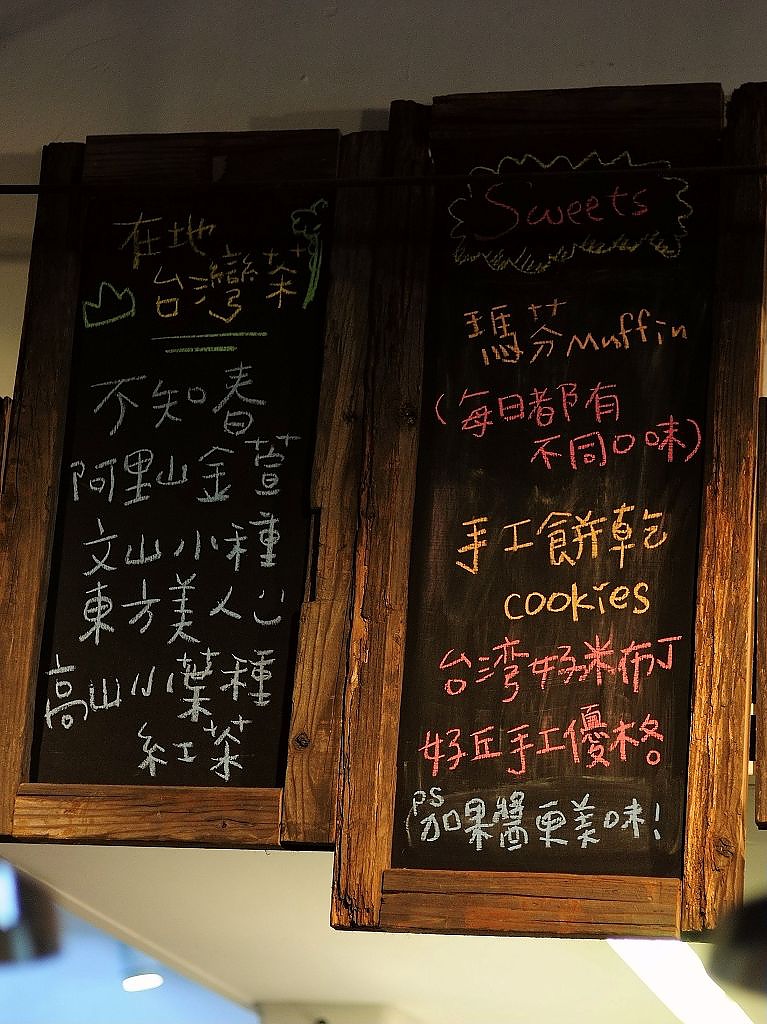 在地
台灣茶
不知春
阿里山金萱
文山小種
東方美人心
高山小葉種
紅茶
Sweets
瑪芬 Muffin
(每日都有
不同口味)
手工餅乾
cookies
台灣好米布丁
好丘手工優格。
PS
加果醬更美味!